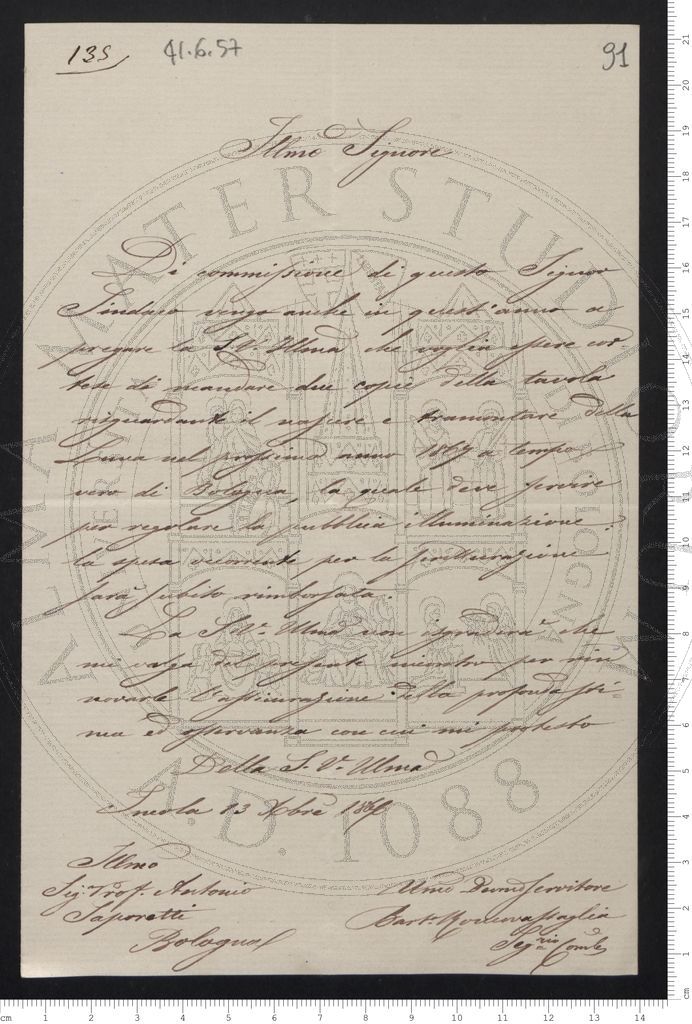 135
41.6.57
91
Illmo Signore
Di commissione di questo Signor
Sindaco vengo anche in quest'anno a
pregare la S. V. Illma che voglia essere cor
tese di mandare due copie della tavola
risguardante il nascere e tramontare della
Luna nel prossimo anno 1867 a tempo
vero di Bologna, la quale deve servire
per regolare la pubblica illuminazione:
la spesa occorrente per la
sarà subito rimborsata.
La S. Va. Illma non isgradirà che
mi valga del presente incontro per rin
novarle l'assicurazione della profonda sti=
ma ed osservanza con cui mi protesto
Della S. Va. Illma
Imola 13 Xbre
Illmo
Sig. Prof. Antonio
Saporetti
Bologna
Umo Devmo Servitore
Bart.
Segrio Comle
ALMA MATER STUDIORUM
A.D. 1088